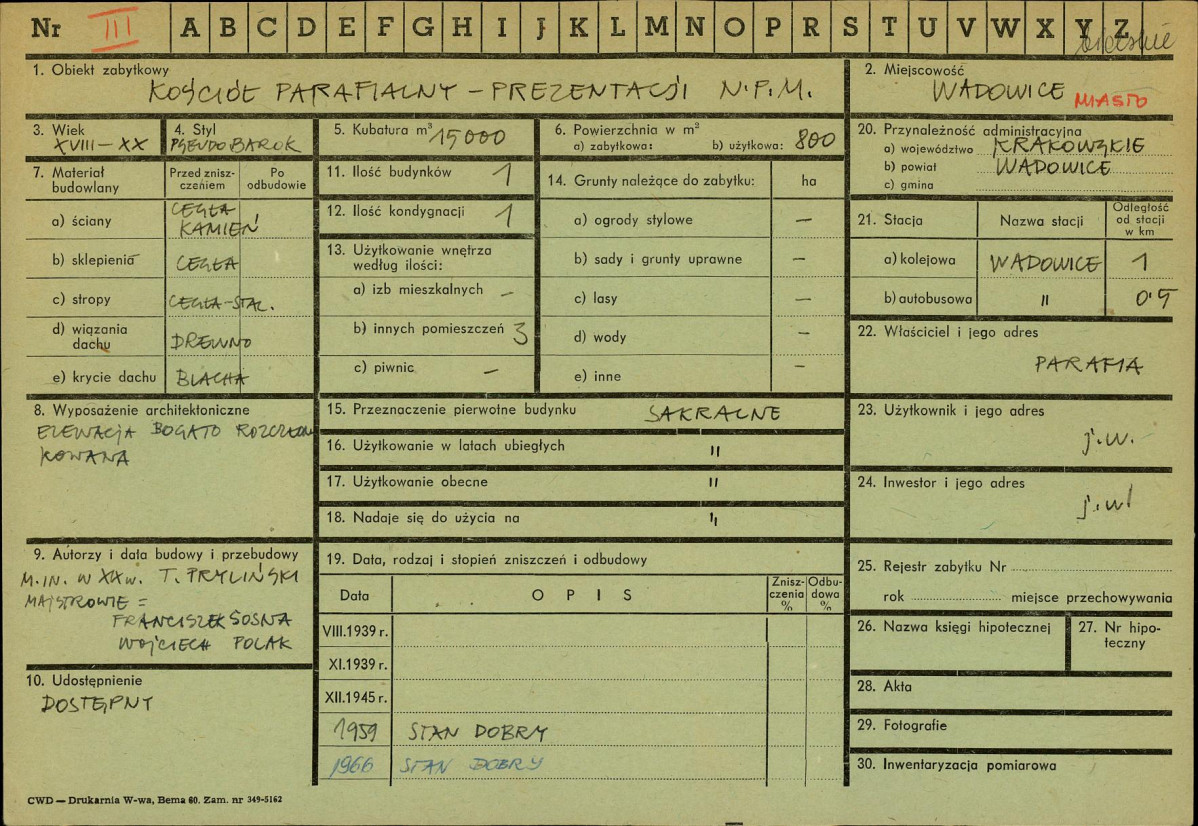 Nr III A B C D E F G H I J K L M N O P R S T U V W X Y Z
bielskie
1. Obiekt zabytkowy
KOŚCIÓŁ PARAFIALNY – PREZENTACJI N.P.M.
2. Miejscowość
WADOWICE MIASTO
3. Wiek
XVIII – XX
4. Styl
PSEUDOBAROK
5. Kubatura m³ 15000
6. Powierzchnia w m²
a) zabytkowa: b) użytkowa: 800
7. Materiał budowlany
Przed zniszczeniem
Po odbudowie
a) ściany CEGŁA
KAMIEŃ
b) sklepienia CEGŁA
c) stropy CEGŁA-STAL.
d) wiązania dachu DREWNO
e) krycie dachu BLACHA
8. Wyposażenie architektoniczne
ELEWACJA BOGATO ROZCZŁON
KOWANA
9. Autorzy i data budowy i przebudowy
M.IN. W XX w. T. PRYLIŃSKI
MAJSTROWIE =
FRANCISZEK SOSNA
WOJCIECH POLAK
10. Udostępnienie
DOSTĘPNY
11. Ilość budynków 1
12. Ilość kondygnacji 1
13. Użytkowanie wnętrza
według ilości:
a) izb mieszkalnych –
b) innych pomieszczeń 3
c) piwnic –
14. Grunty należące do zabytku: ha
a) ogrody stylowe –
b) sady i grunty uprawne –
c) lasy –
d) wody –
e) inne –
15. Przeznaczenie pierwotne budynku SAKRALNE
16. Użytkowanie w latach ubiegłych "
17. Użytkowanie obecne "
18. Nadaje się do użycia na "
19. Data, rodzaj i stopień zniszczeń i odbudowy
Data OPIS Zniszczenia % Odbudowa %
VIII.1939 r.
XI.1939 r.
XII.1945 r.
1959 STAN DOBRY
1966 STAN DOBRY
20. Przynależność administracyjna
a) województwo KRAKOWSKIE
b) powiat WADOWICE
c) gmina
21. Stacja Nazwa stacji Odległość od stacji w km
a) kolejowa WADOWICE 1
b) autobusowa " 0.5
22. Właściciel i jego adres
PARAFIA
23. Użytkownik i jego adres
j.w.
24. Inwestor i jego adres
j.w.
25. Rejestr zabytku Nr
rok miejsce przechowywania
26. Nazwa księgi hipotecznej
27. Nr hipoteczny
28. Akta
29. Fotografie
30. Inwentaryzacja pomiarowa
CWD — Drukarnia W-wa, Bema 60. Zam. nr 349-5162